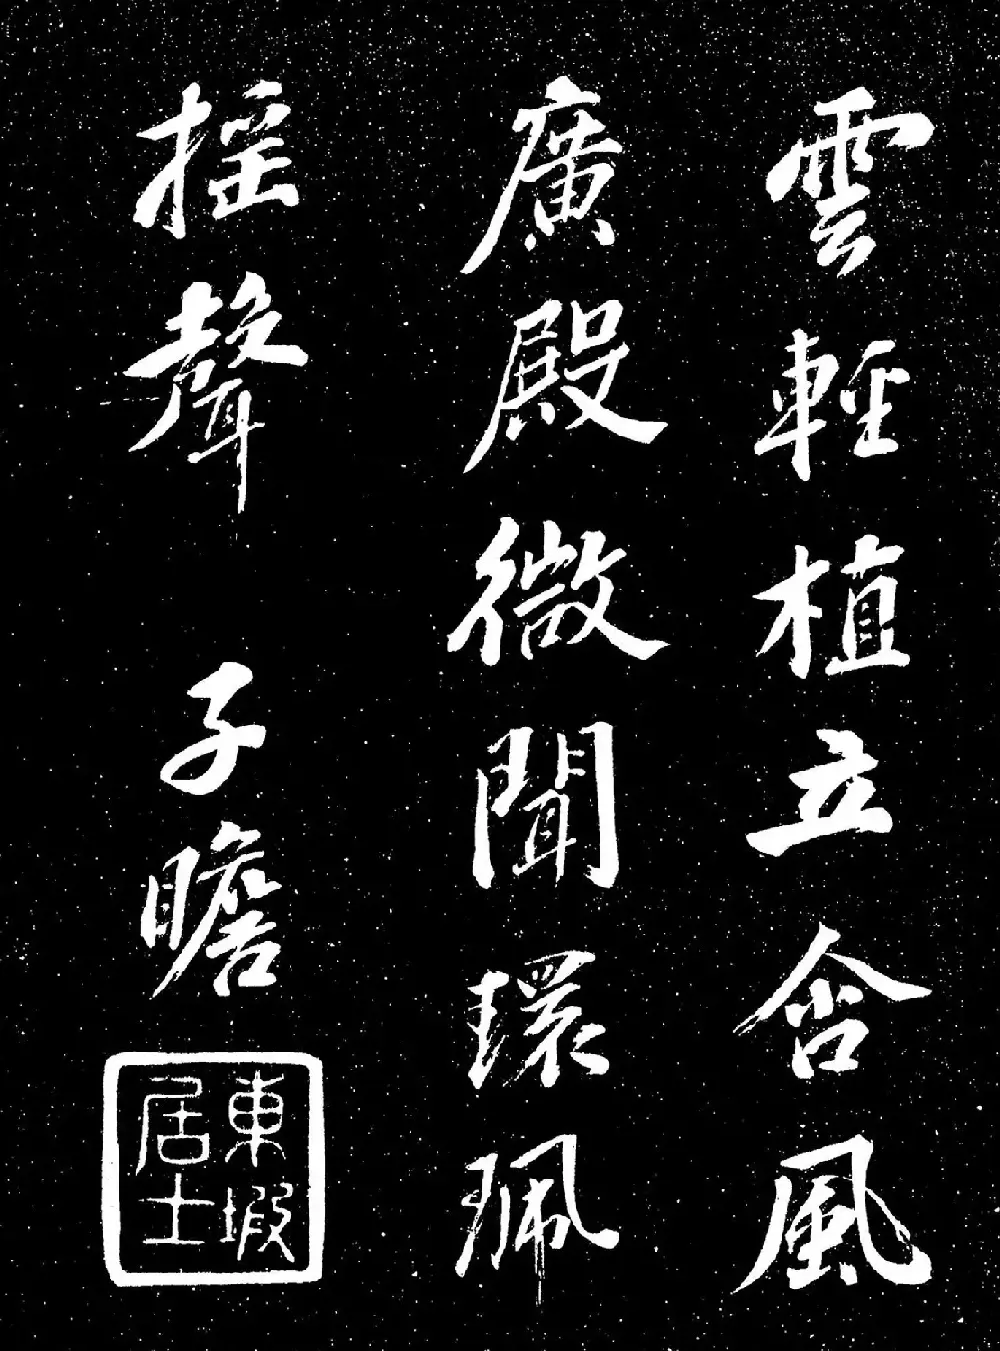 雲輕植立含風
廣殿微聞環珮
摇聲 子瞻
東坡居士